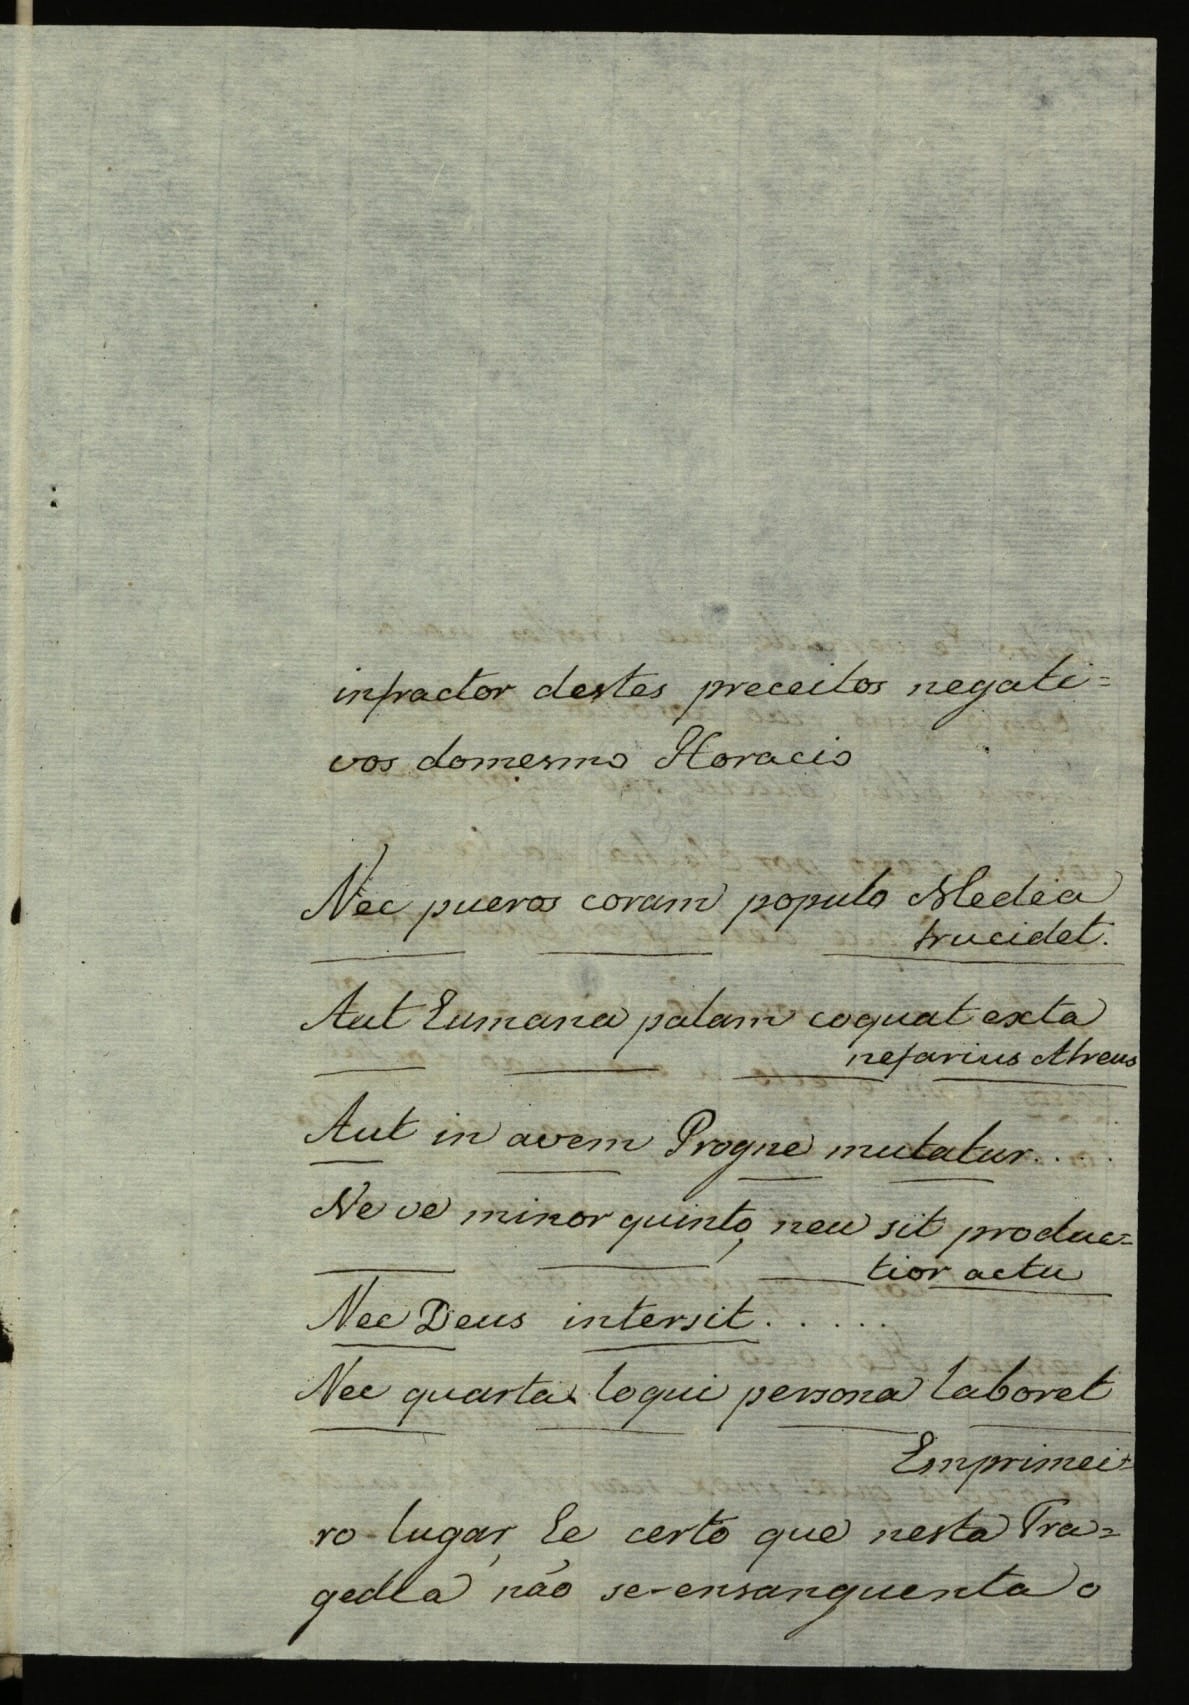 infractor destes preceitos negati=
vos domesmo Horacio
Nec pueros coram populo Medea
trucidet.
Aut humana palam coquat exta
nefarius Atreus
Aut in avem Progne mutatur....
Ne ve minor quinto, neu sit produc=
tior actu
Nec Deus intersit......
Nec quarta loqui persona laboret
Emprimei=
ro lugar, he certo que nesta Tra=
gedia não se-ensanguenta o